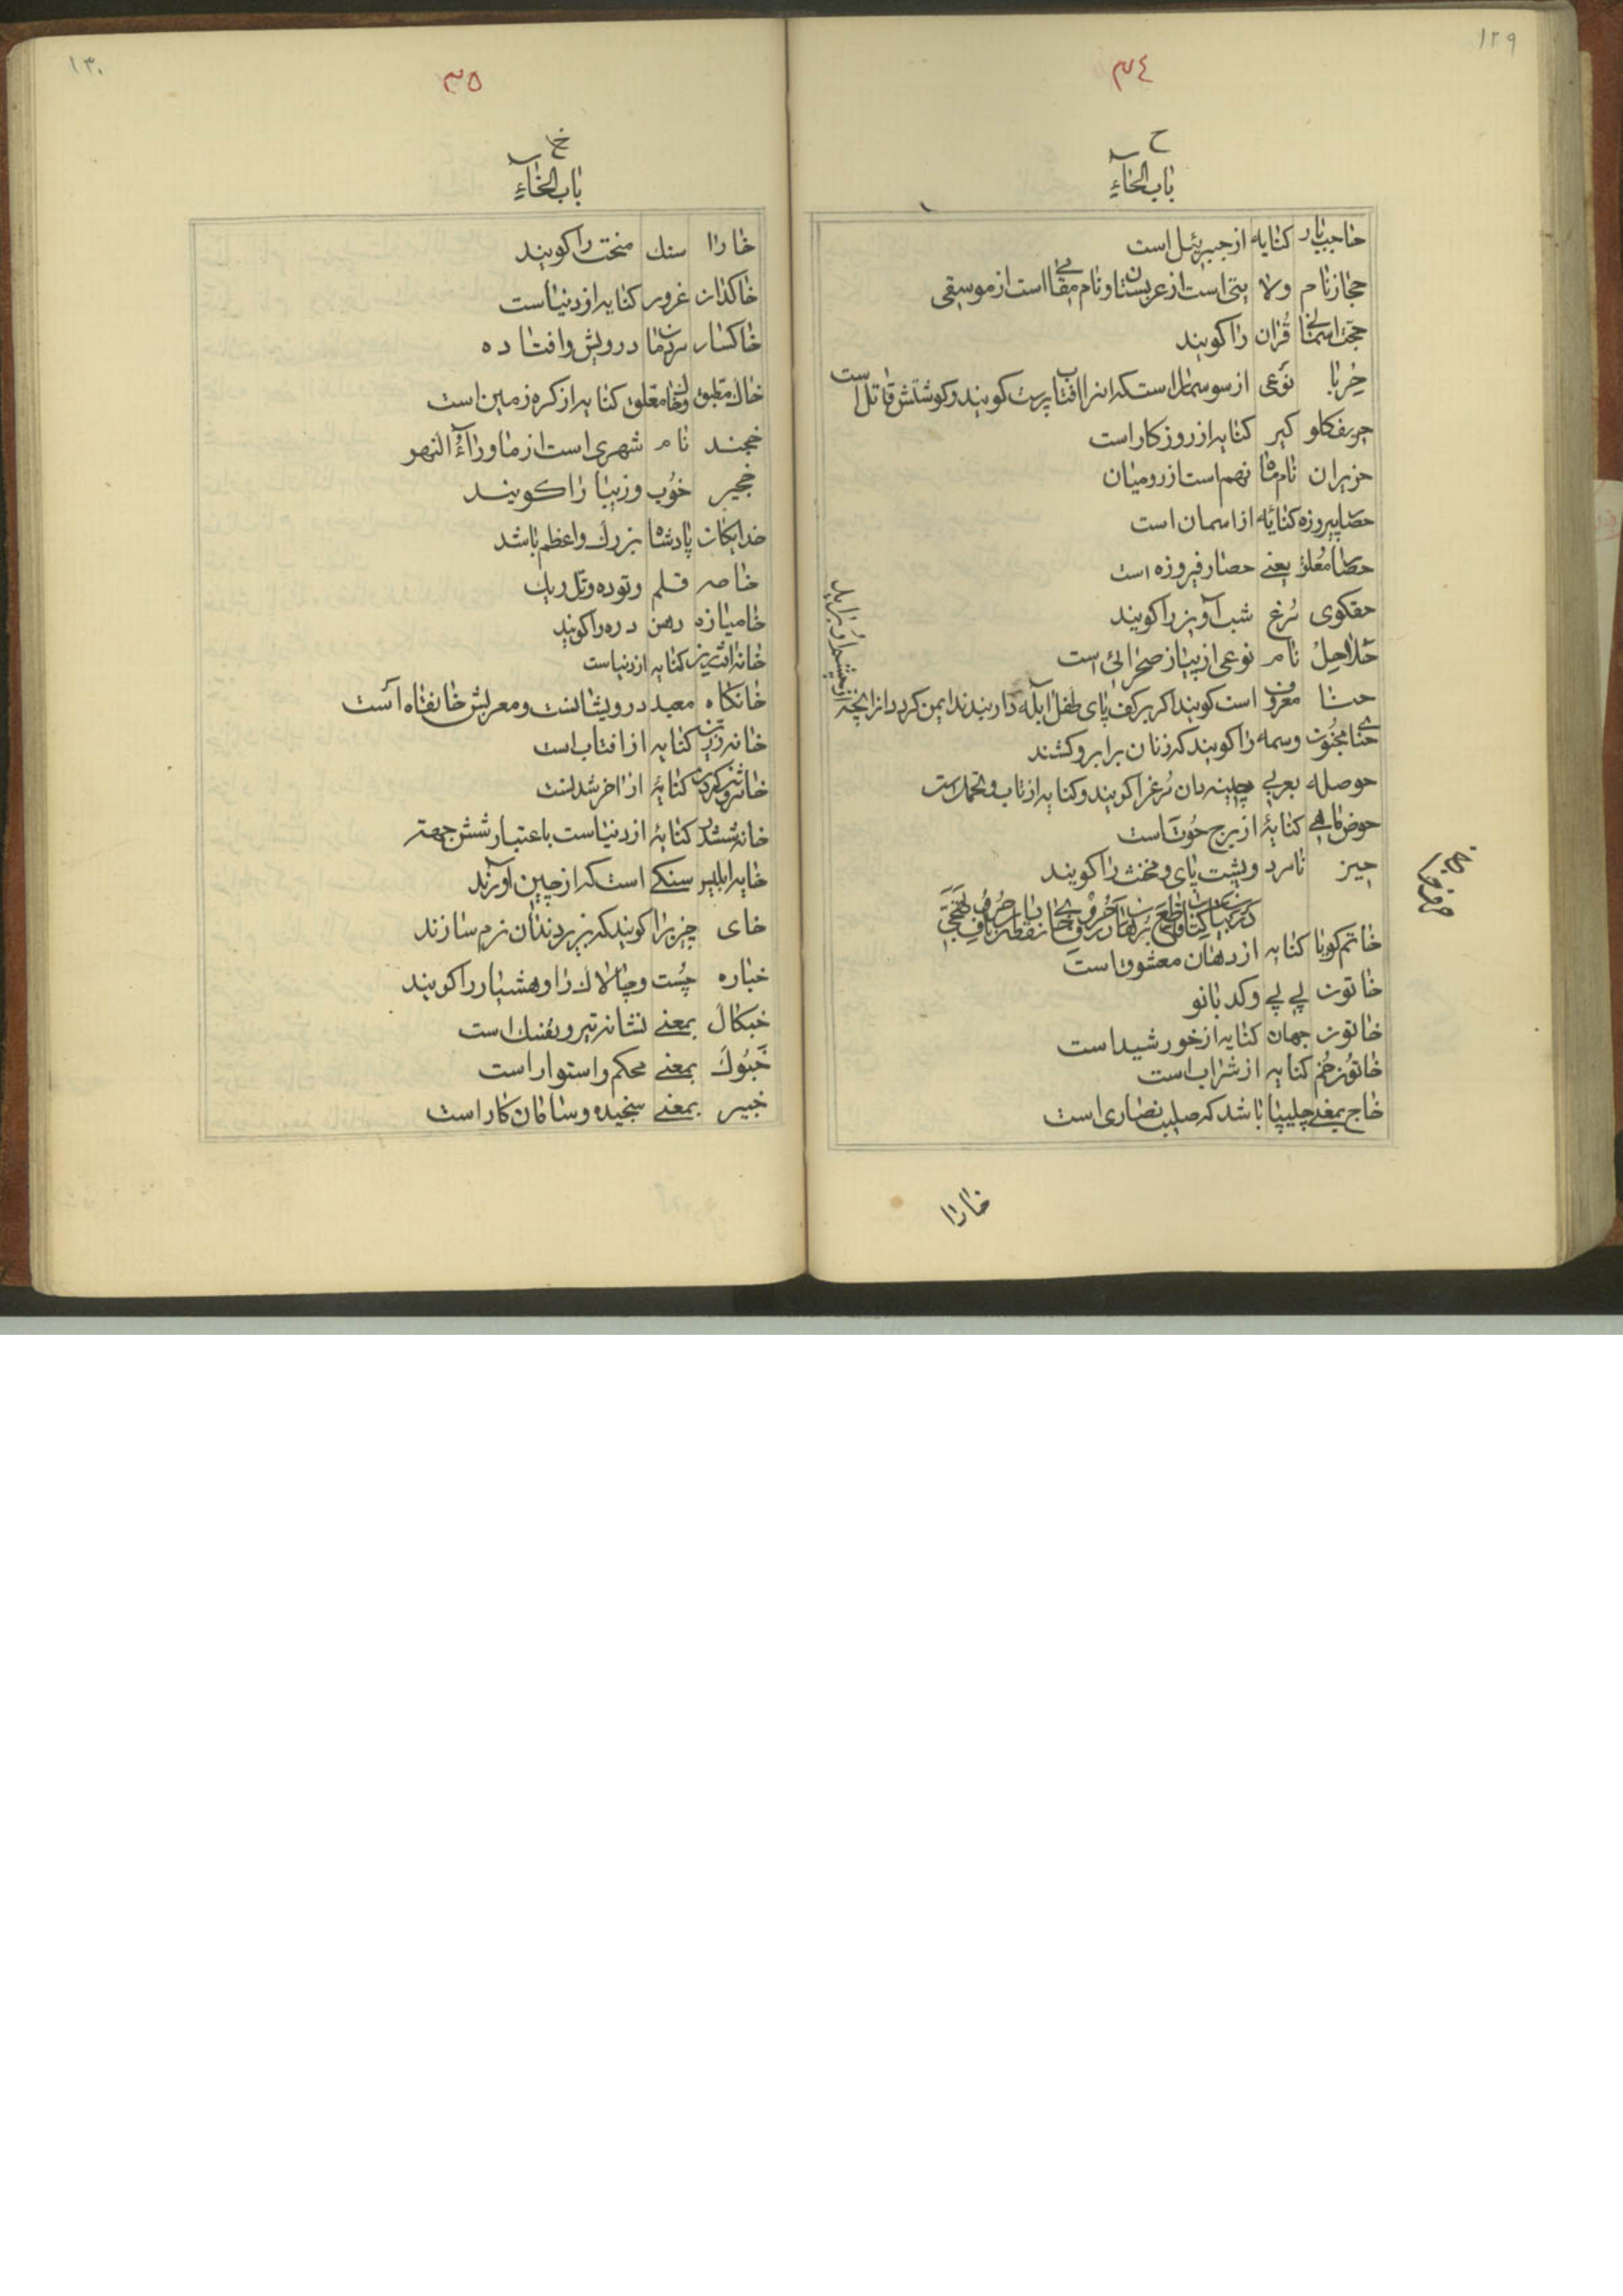 ۱۲۹
۳۴
ح
باب الحآء
حاجب بار کنایه از جبرئیل است
حجاز نام ولایتی است از عربستان و نام مقامی است از موسیقی
حجت اسمانی قُران را کویند
حِربا نوَعی از سوسمار است که انرا افتاب پرست کویند و کوشتش قاتل است
حریف کلو کیر کنایه از روزکار است
حزیران نام ماه نهم است از رومیان
حصار پیروزه کنایه از اسمان است
حصار معُلق یعنے حصار فیروزه است
حقکوی مُرغ شب آویز را کویند
حَلاحِلُ نام نوعی از پیاز صحرائی است
حنا معروف است کویند اکر بر کف پای طفل ابله دار بندند ایمن کردد از انچه
از چشم او براید
حنای مجنُون وسمه را کویند که زنان بر ابرو کشند
حوصله بعربے چینه دان مُرغ را کویند و کنایه از تاب و تحمل است
حوض ماهے کنایهٔ از برج حُوت است
حیز نامرد و پشت پای و مخنث را کویند
خاتم کویا کنایه از دهان معشوق است
خاتون بے بے و کدبانو
خاتون جهان کنایه از خورشید است
خاتُون خُم کنایه از شراب است
خاج بمعنے چلیپا باشد که صلیب نصاری است
خارا
۱۳۰
۳۵
خ
باب الخآء
خارا سنك سخت را کویند
خاکدان غرور کنایه از دنیا است
خاکسار مردمان درویش و افتاده
خاك مطبق و خاك معلق کنایه از کره زمین است
خجند نام شهری است از ماورآءُ النهر
خجیر خوُب و زیبا را کویند
خدایکان پادشاه بزرك و اعظم باشد
خامه قلم و توده و تل ریك
خامیازه دهن دره را کویند
خانه کنایه از دنیاست
خانکاه معبد درویشانست و معربش خانقاه است
خانه زرین کنایه از افتاب است
خانه روشن کردن کنایهٔ از اخر شدنست
خانه ششدر کنایهٔ از دنیاست باعتبار شش جهته
خایه ابلیس سنکے است که از چین آورند
خای چیزیرا کویند که بزیر دندان نرم سازند
خباره چُست و چالاك را و هشیار را کویند
خبکال بمعنے نشانه تیر و تفنك است
خَبُوك بمعنے محکم و استوار است
خبیر بمعنے سنجیده و سامان کار است